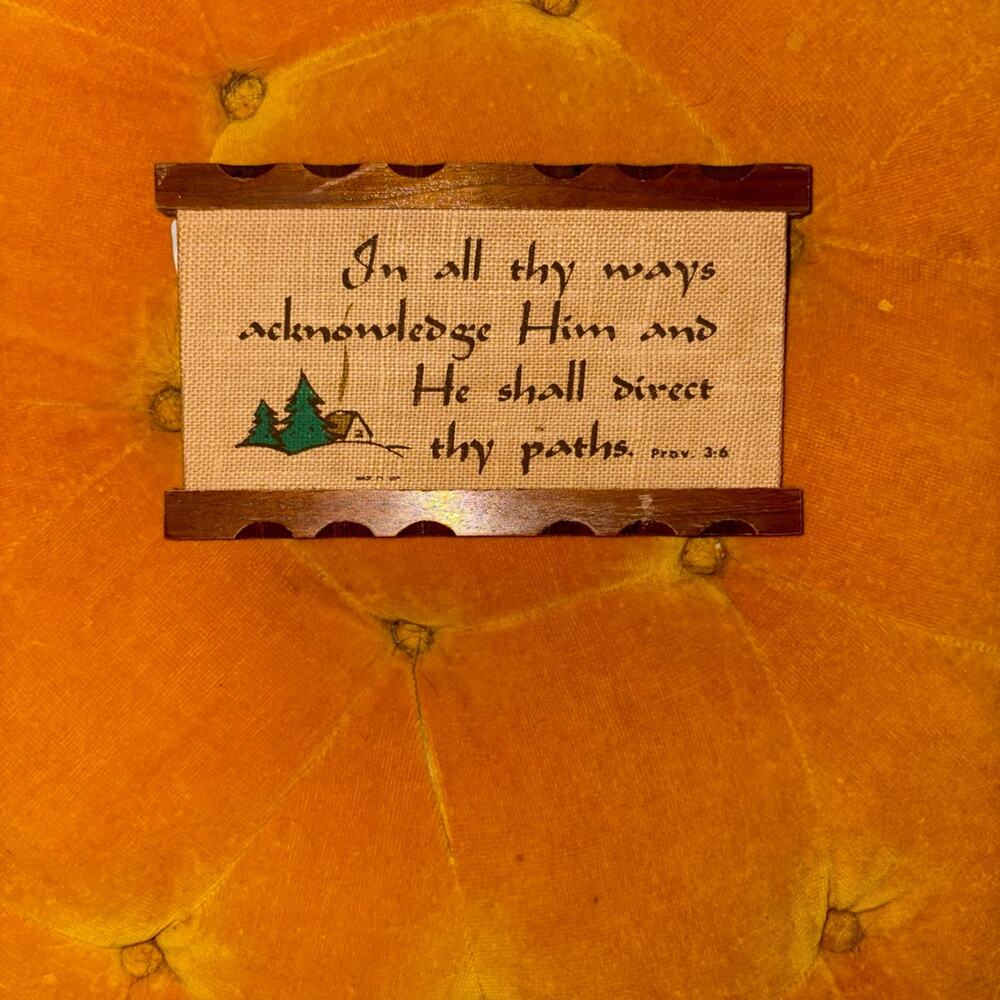 In all thy ways
acknowledge Him and
He shall direct
thy paths. Prov. 3:6